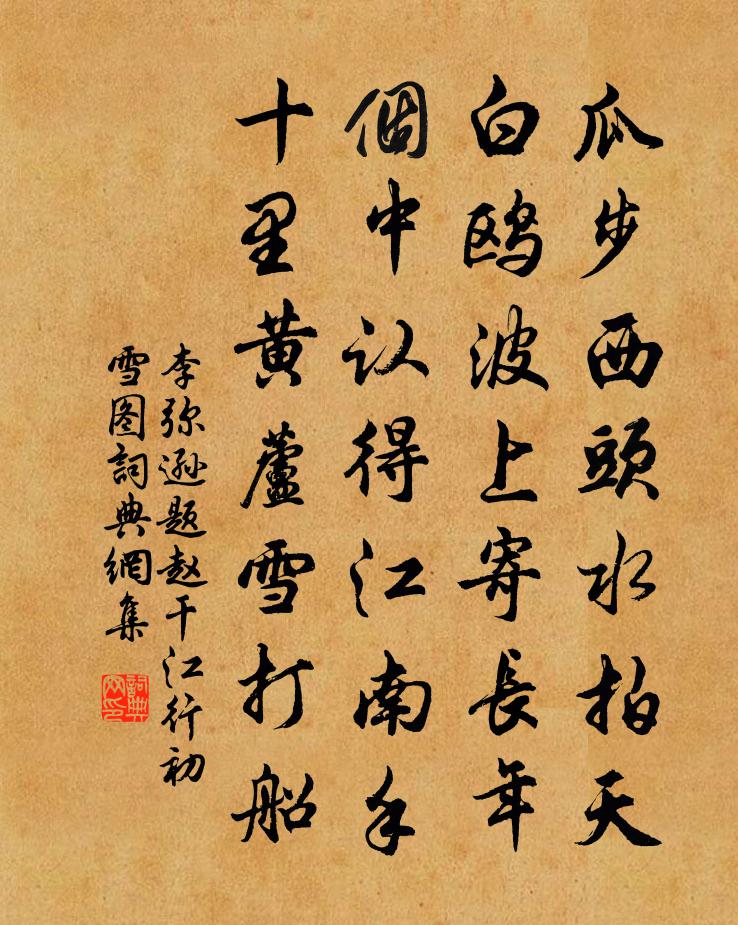 瓜步西頭水拍天
白鸥波上寄長年
個中认得江南手
十里黄蘆雪打船
李弥逊题赵干江行初
雪图詞典網集
詞典网印